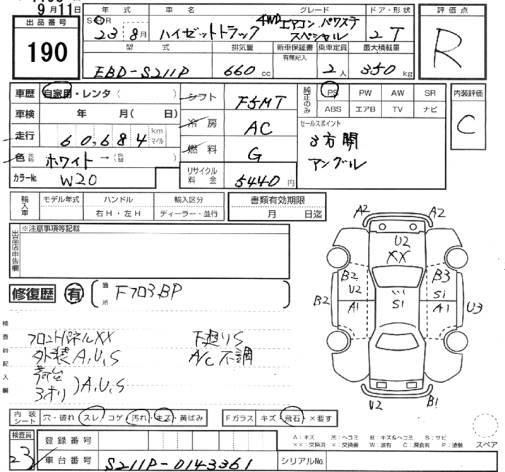 9月11日
出品番号
190
年式 車名 グレード ドア・形状
S・H 23年8月 ハイゼットトラック 4WD エアコン、パワステ スペシャル 2 T
型式 排気量 新車保証書 有無記入 乗車定員 最大積載量
EBD-S211P 660cc 2人 350kg
評価点
R
車歴 自家用・レンタ ( )
車検 年 月( 日)
走行 60,684 km マイル
色 ホワイト →
カラーNo. W20
シフト F5MT
冷房 AC
燃料 G
リサイクル料金 5440円
純正のみ PS PW AW SR
ABS エアB TV ナビ
セールスポイント
3方開
アングル
内装評価
C
輸入車 モデル年式 ハンドル 輸入区分
右H・左H ディーラー・並行
書類有効期限
月 日迄
※注意事項等記載
出品店申告欄
修復歴 有 箇所 F703,BP
検査員記入欄
フロントパネルXX
外装A,U,S
荷台
アオリ )A,U,S
下廻りS
A/C不調
A2 A2
U2
XX
B2 B3
U2 S1
B2 S1 U3
A1 A1
U2 B1
内装シート 穴・破れ スレ コゲ 汚れ・キズ 黄ばみ
Fガラス キズ 飛石 ×要す
A:キズ U:ヘコミ B:キズ&ヘコミ S:サビ
スペア
検査員
23
登録番号
車台番号 S211P-0143361
シリアルNo.